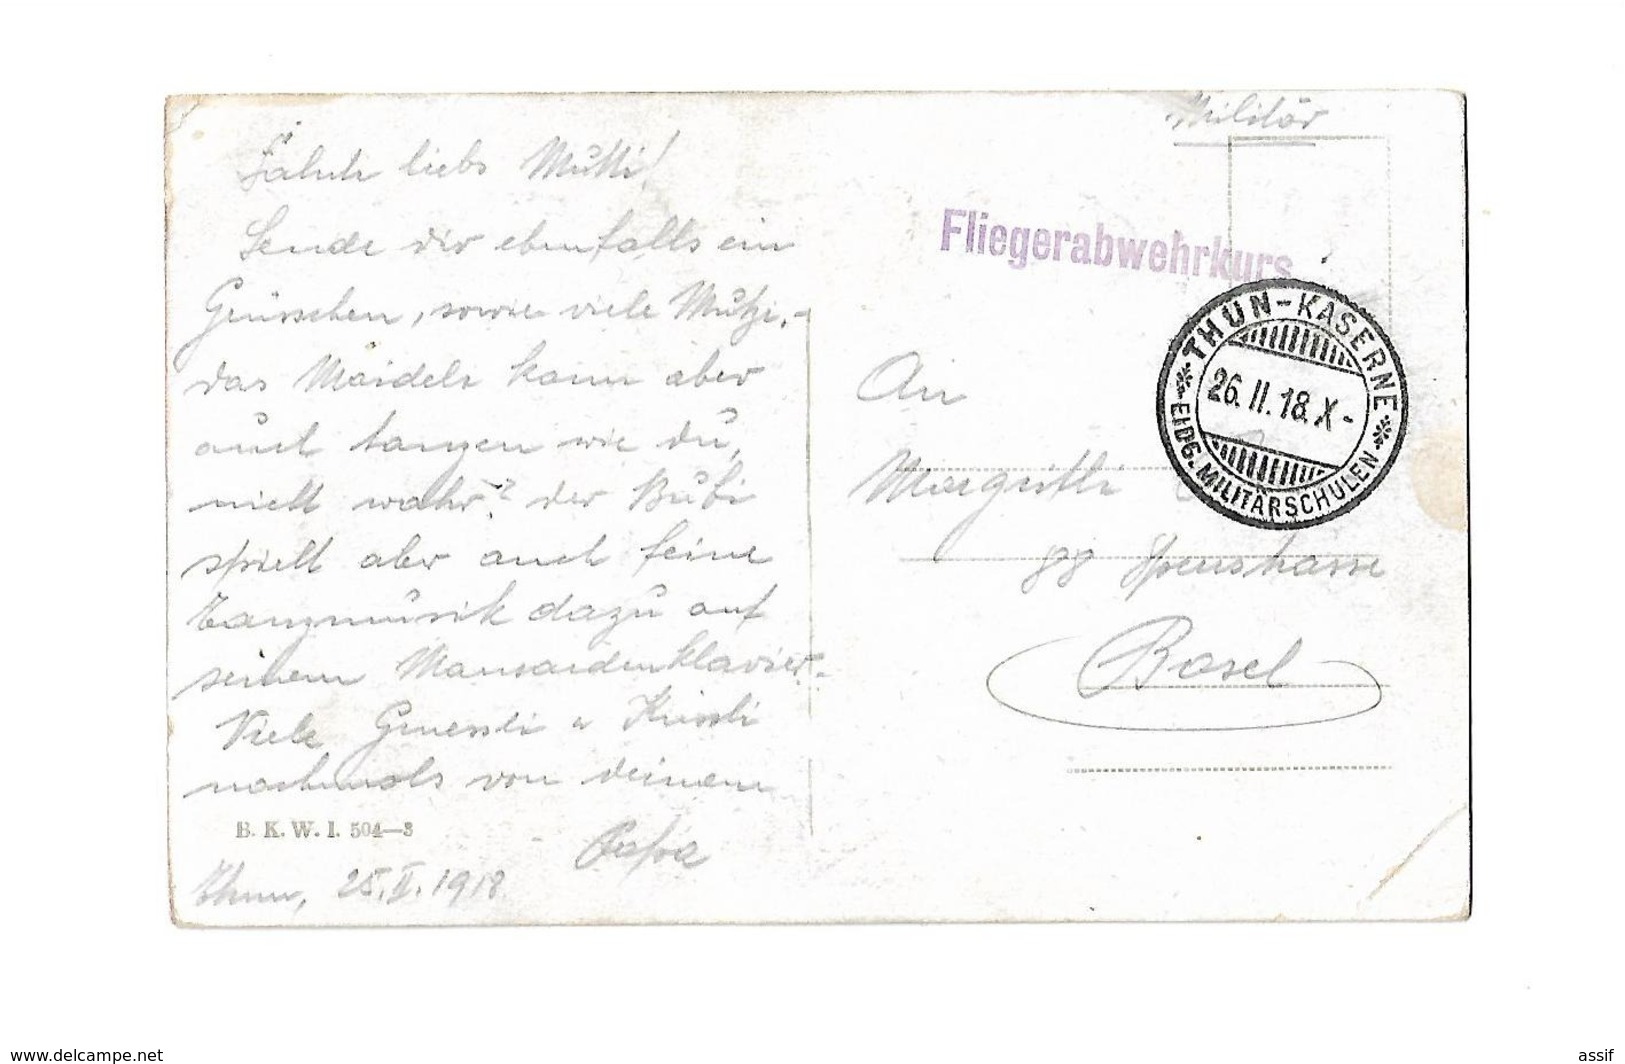 liebs Mutti!
Sende dir ebenfalls ein
Grüsschen, sowie viele Mutzi,-
das Maideli kann aber
auch tanzen wie du,
nicht wahr? der Bubi
spielt aber auch feine
Tanzmusik dazu auf
seinem Mansardenklavier.-
Viele Gruessli u Küssli
nochmals von deinem
Papa
B. K. W. I. 504—3
Thun, 25.II.1918.
Militär
Fliegerabwehrkurs
THUN-KASERNE
26.II.18.X-
EIDG. MILITÄRSCHULEN
An
Margrithli
88
Basel
www.delcampe.net
assif